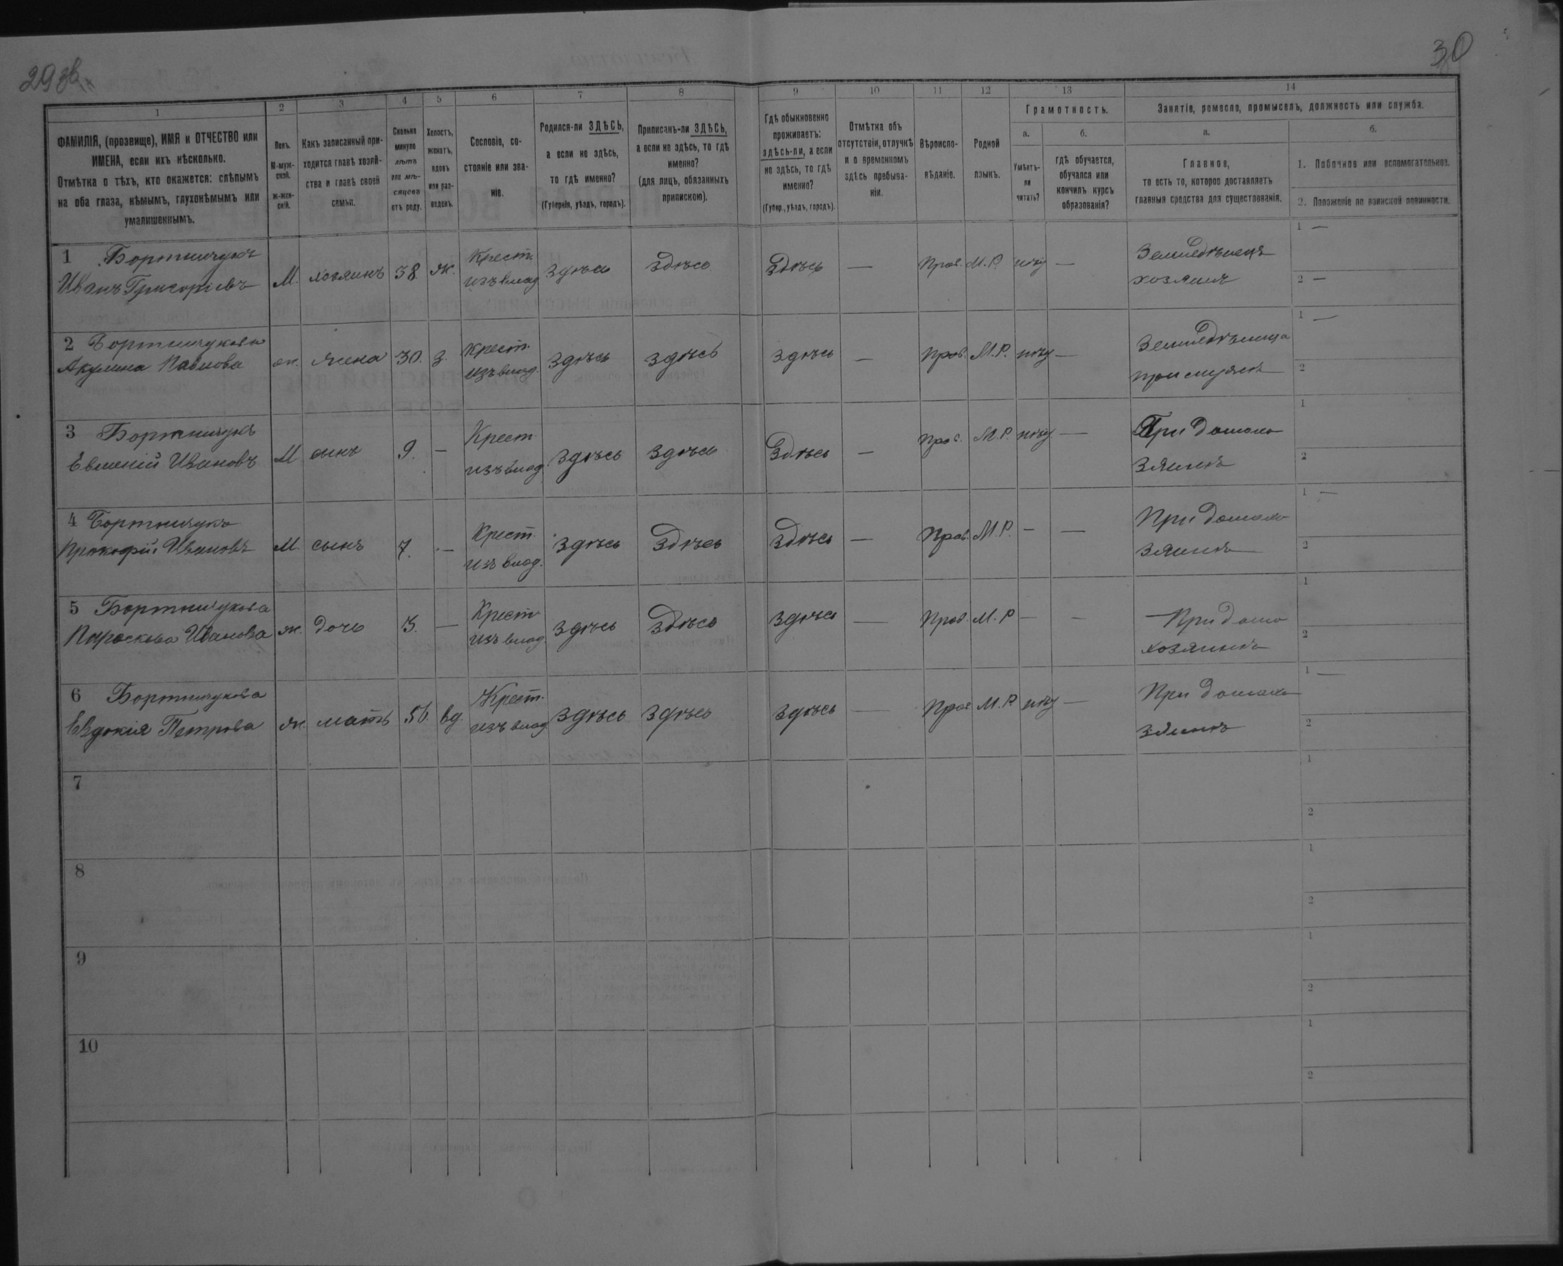 29 об
30
1 2 3 4 5 6 7 8 9 10 11 12 13 14
ФАМИЛІЯ, (прозвище), ИМЯ и ОТЧЕСТВО или ИМЕНА, если ихъ нѣсколько.
Отмѣтка о тѣхъ, кто окажется: слѣпымъ на оба глаза, нѣмымъ, глухонѣмымъ или умалишеннымъ.
Полъ.
М-мужской.
Ж-женскій.
Какъ записанный приходится главѣ хозяйства и главѣ своей семьи.
Сколько минуло лѣтъ или мѣсяцевъ отъ роду.
Холостъ, женатъ, вдовъ или разведенъ.
Сословіе, состояніе или званіе.
Родился-ли ЗДѢСЬ, а если не здѣсь, то гдѣ именно?
(Губернія, уѣздъ, городъ).
Приписанъ-ли ЗДѢСЬ, а если не здѣсь, то гдѣ именно?
(для лицъ, обязанныхъ припискою).
Гдѣ обыкновенно проживаетъ: здѣсь-ли, а если не здѣсь, то гдѣ именно?
(Губер., уѣздъ, городъ).
Отмѣтка объ отсутствіи, отлучкѣ и о временномъ здѣсь пребываніи.
Вѣроисповѣданіе.
Родной языкъ.
Грамотность.
а.
Умѣетъ-ли читать?
б.
гдѣ обучается, обучался или кончилъ курсъ образованія?
Занятіе, ремесло, промыселъ, должность или служба.
а.
Главное,
то есть то, которое доставляетъ главныя средства для существованія.
б.
1. Побочное или вспомогательное.
2. Положеніе по воинской повинности.
1 Бортничукъ Иванъ Григорьевъ М. хозяинъ 38 ж. Крест. изъ влад. здѣсь здѣсь здѣсь — Прав. М.Р. нѣту — Земледѣлецъ хозяинъ 1 — 2 —
2 Бортничукова Акулина Павлова ж. жена 30. з. Крест. изъ влад. здѣсь здѣсь здѣсь — Прав. М.Р. нѣту — Земледѣлица при мужѣ 1 — 2
3 Бортничукъ Евгеній Ивановъ М сынъ 9. — Крест изъ влад. здѣсь здѣсь здѣсь — Прав. М.Р. нѣту — При домохозяинѣ 1 2
4 Бортничукъ Прокофій Ивановъ М. сынъ 7. — Крест изъ влад. здѣсь здѣсь здѣсь — Прав. М.Р. — — При домохозяинѣ 1 — 2
5 Бортничукова Параскова Иванова ж. дочь 3. — Крест изъ влад здѣсь здѣсь здѣсь — Прав. М.Р — — При домохозяинѣ 1 2
6 Бортничукова Евдокія Петрова ж. мать 56. вд. Крест. изъ влад здѣсь здѣсь здѣсь — Прав М.Р нѣту — При домохозяинѣ 1 — 2
7 1 2
8 1 2
9 1 2
10 1 2